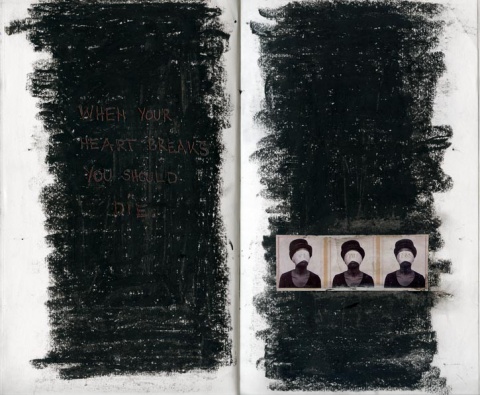 WHEN YOUR
HEART BREAKS
YOU SHOULD
DIE.